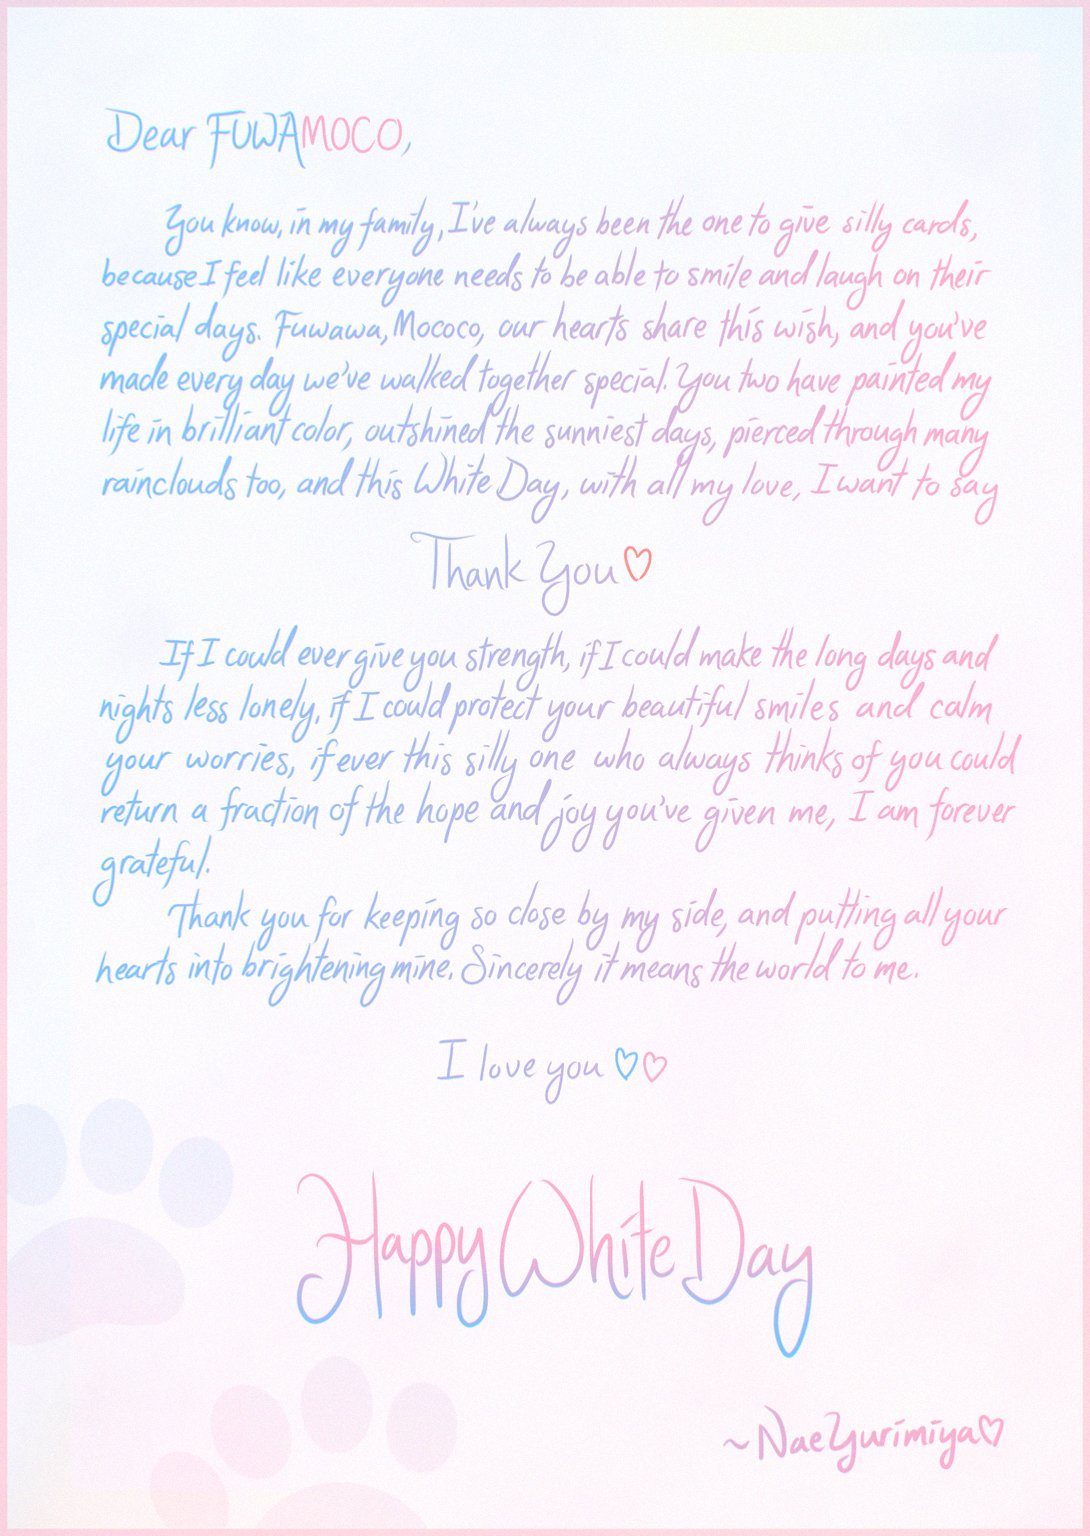 Dear FUWAMOCO,
You know, in my family, I've always been the one to give silly cards,
because I feel like everyone needs to be able to smile and laugh on their
special days. Fuwawa, Mococo, our hearts share this wish, and you've
made every day we've walked together special. You two have painted my
life in brilliant color, outshined the sunniest days, pierced through many
rainclouds too, and this White Day, with all my love, I want to say
Thank You♡
If I could ever give you strength, if I could make the long days and
nights less lonely, if I could protect your beautiful smiles and calm
your worries, if ever this silly one who always thinks of you could
return a fraction of the hope and joy you've given me, I am forever
grateful.
Thank you for keeping so close by my side, and putting all your
hearts into brightening mine. Sincerely it means the world to me.
I love you ♡♡
Happy White Day
~Nae Yurimiya♡